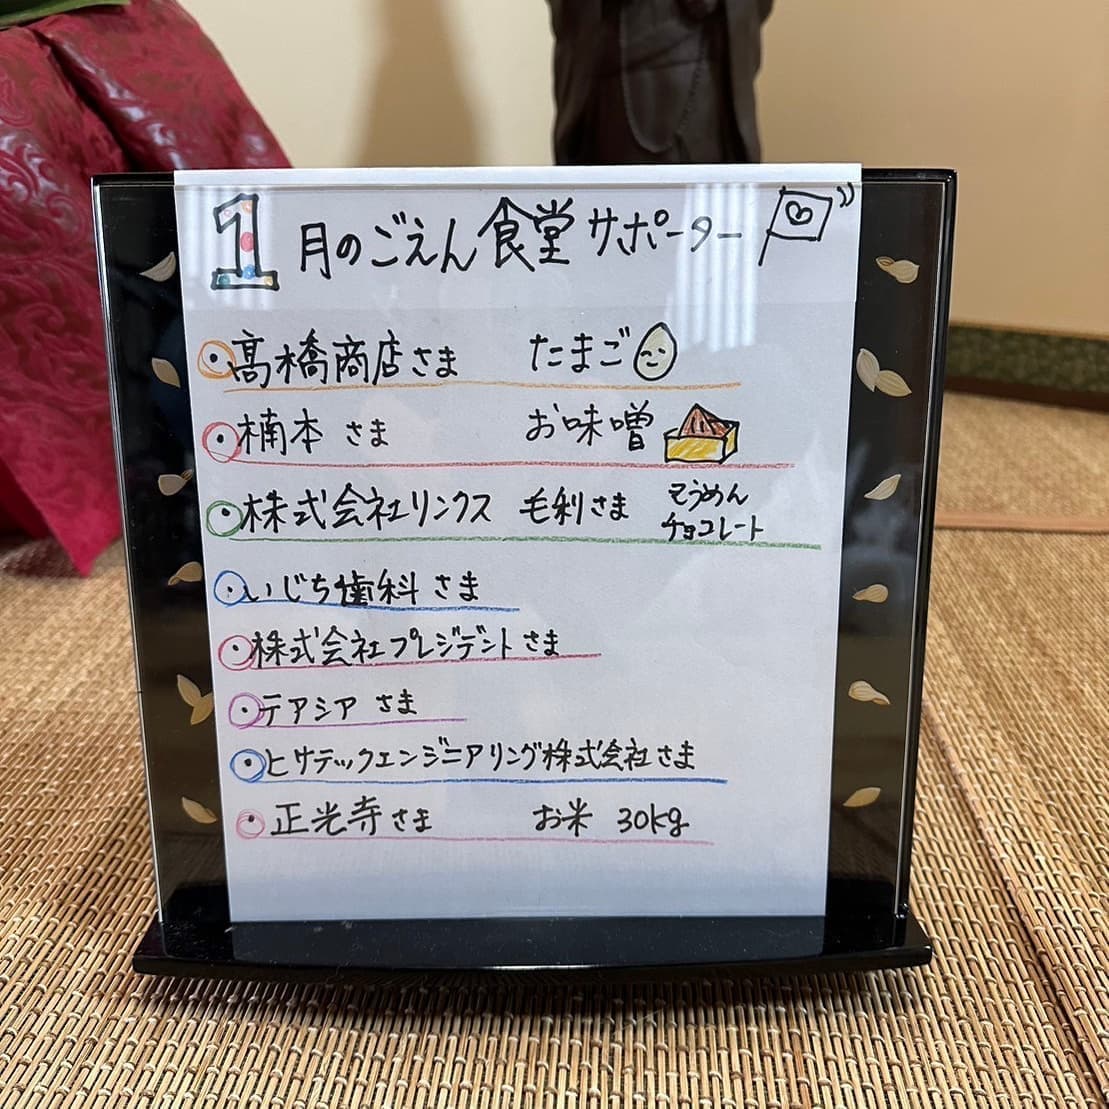 1月のごえん食堂サポーター
髙橋商店さま たまご
楠本さま お味噌
株式会社リンクス 毛利さま そうめん
チョコレート
いじち歯科さま
株式会社プレジデントさま
テアシアさま
ヒサテックエンジニアリング株式会社さま
正光寺さま お米 30kg